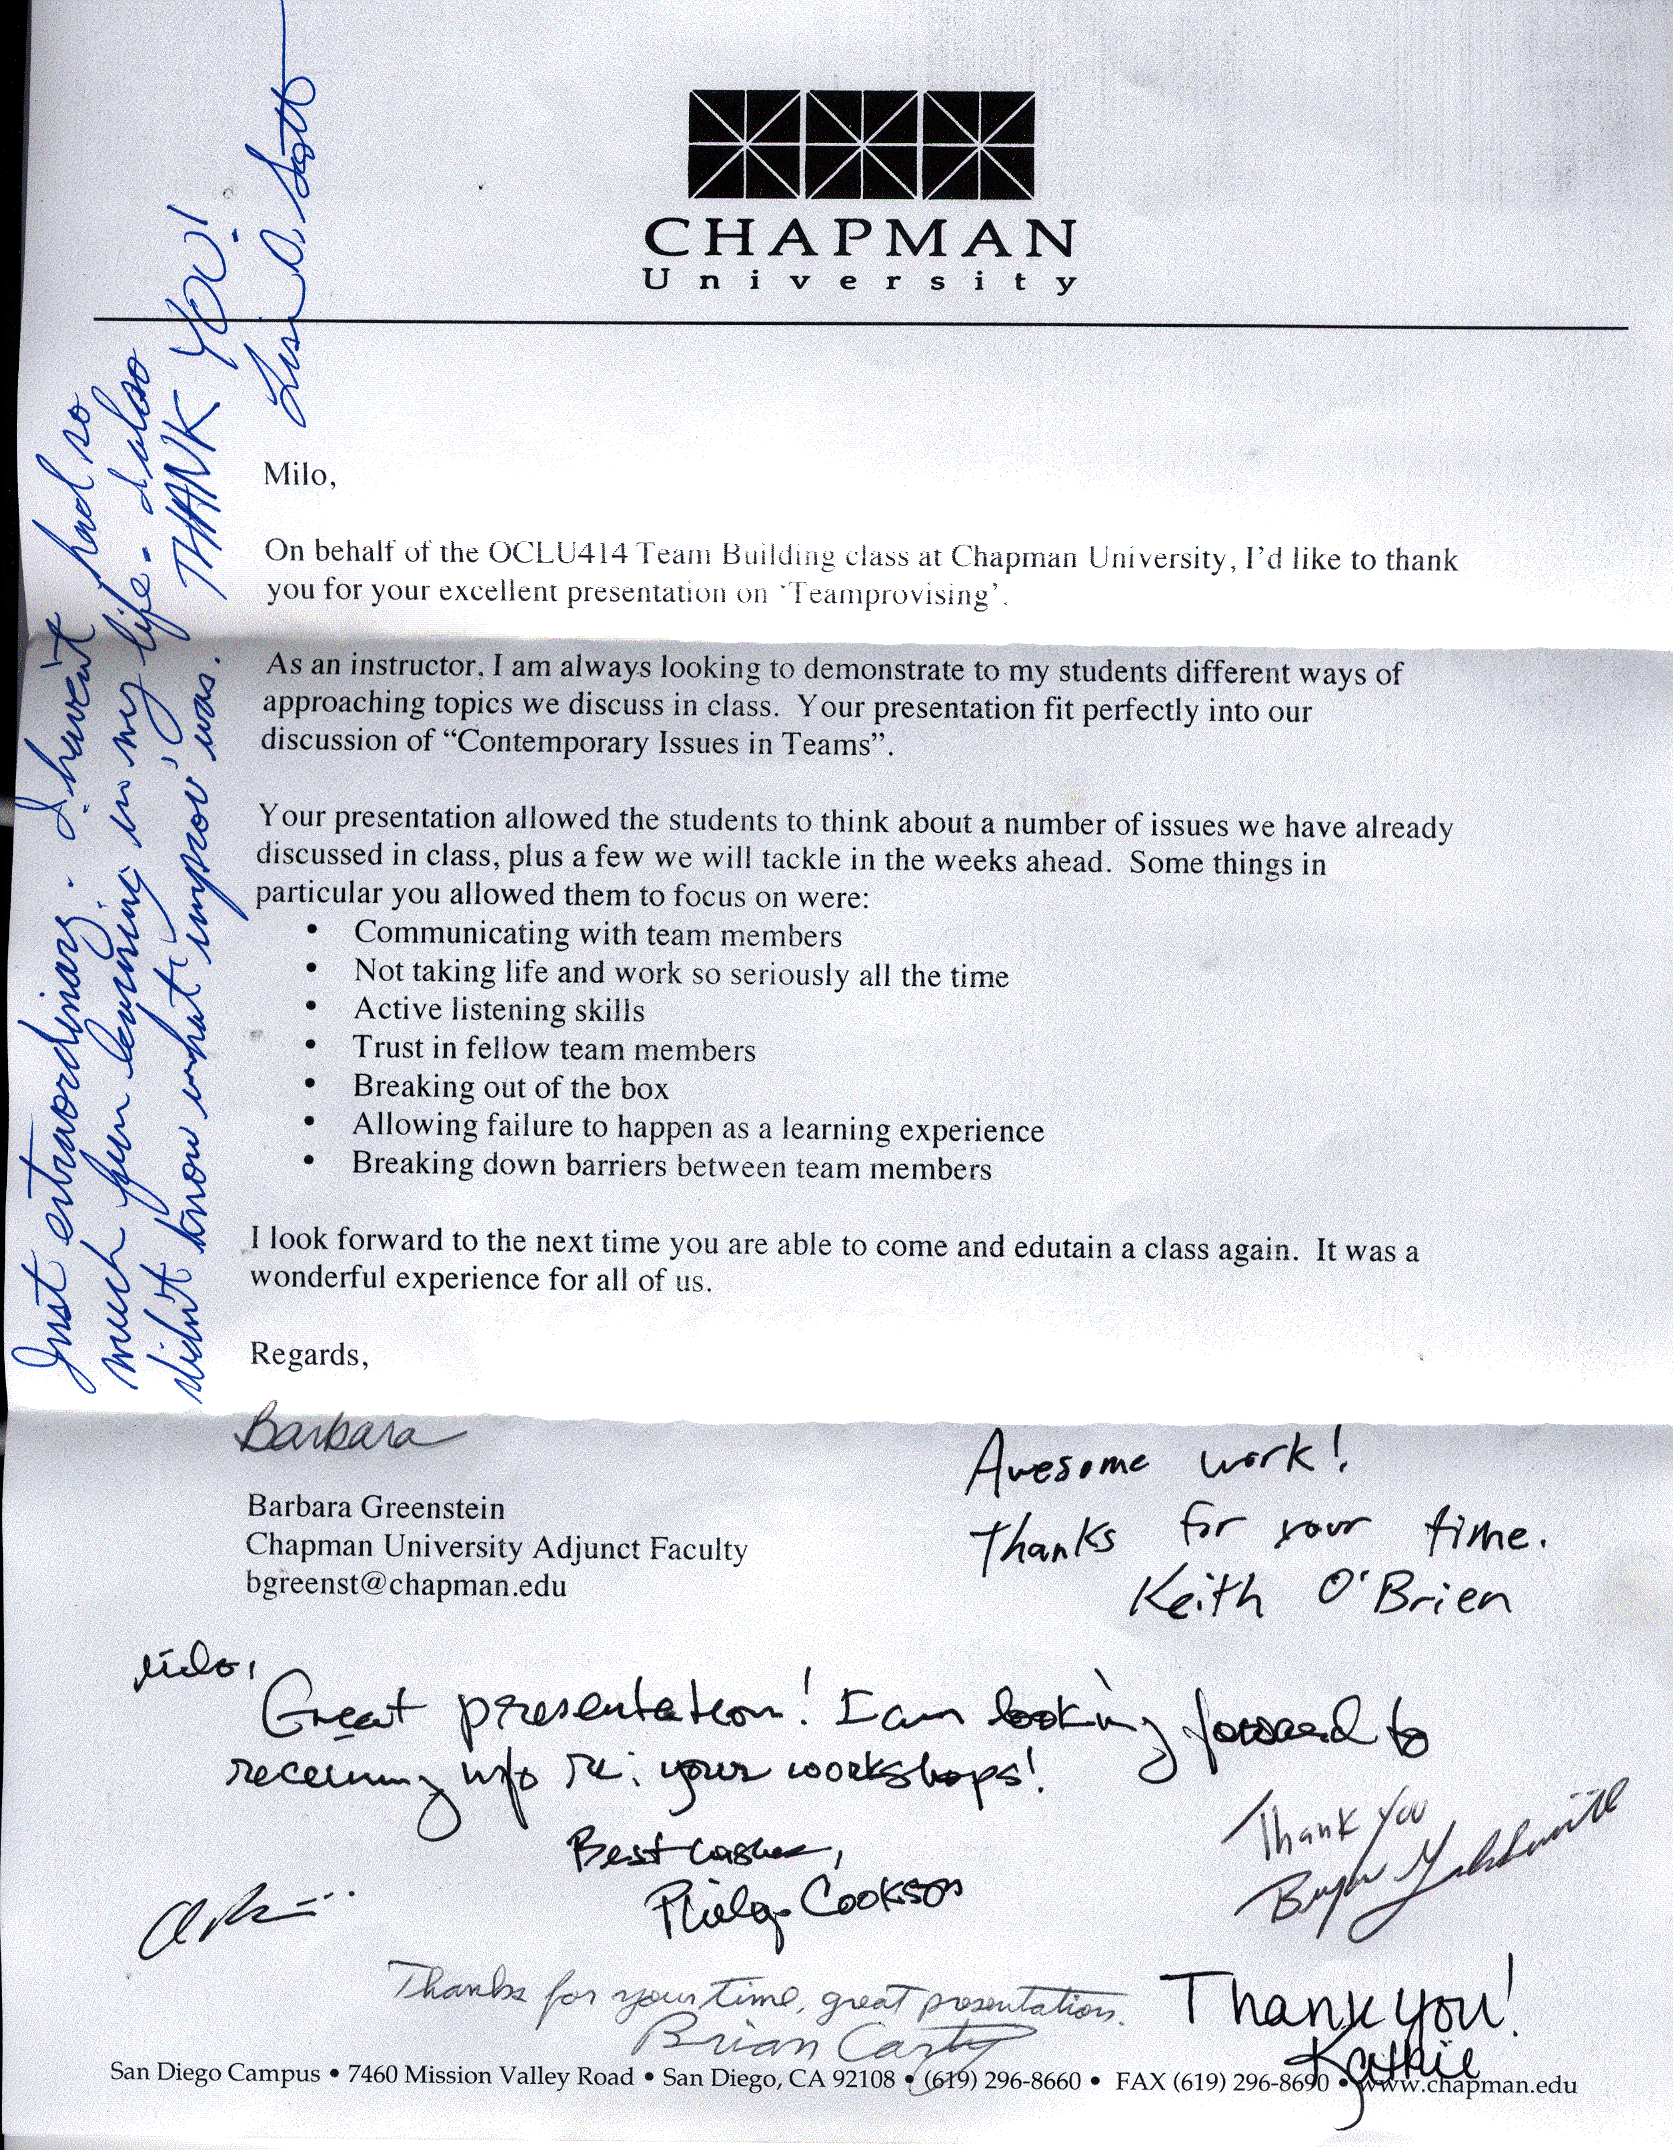 CHAPMAN
University
Milo,
On behalf of the OCLU414 Team Building class at Chapman University, I'd like to thank
you for your excellent presentation on 'Teamprovising'.
As an instructor, I am always looking to demonstrate to my students different ways of
approaching topics we discuss in class. Your presentation fit perfectly into our
discussion of “Contemporary Issues in Teams”.
Your presentation allowed the students to think about a number of issues we have already
discussed in class, plus a few we will tackle in the weeks ahead. Some things in
particular you allowed them to focus on were:
• Communicating with team members
• Not taking life and work so seriously all the time
• Active listening skills
• Trust in fellow team members
• Breaking out of the box
• Allowing failure to happen as a learning experience
• Breaking down barriers between team members
I look forward to the next time you are able to come and edutain a class again. It was a
wonderful experience for all of us.
Regards,
Barbara
Barbara Greenstein
Chapman University Adjunct Faculty
bgreenst@chapman.edu
Just extraordinary. I haven't had so
much fun learning in my life - I also
didn't know what 'improv' was.
THANK YOU!
Lisa A. Scott
Awesome work!
Thanks for your time.
Keith O'Brien
Milo,
Great presentation! I am looking forward to
receiving info re: your workshops!
Best wishes,
Philip Cookson
Thank You
Thanks for your time, great presentation.
Brian Carty
Thank you!
Kathie
San Diego Campus • 7460 Mission Valley Road • San Diego, CA 92108 • (619) 296-8660 • FAX (619) 296-8690 • www.chapman.edu